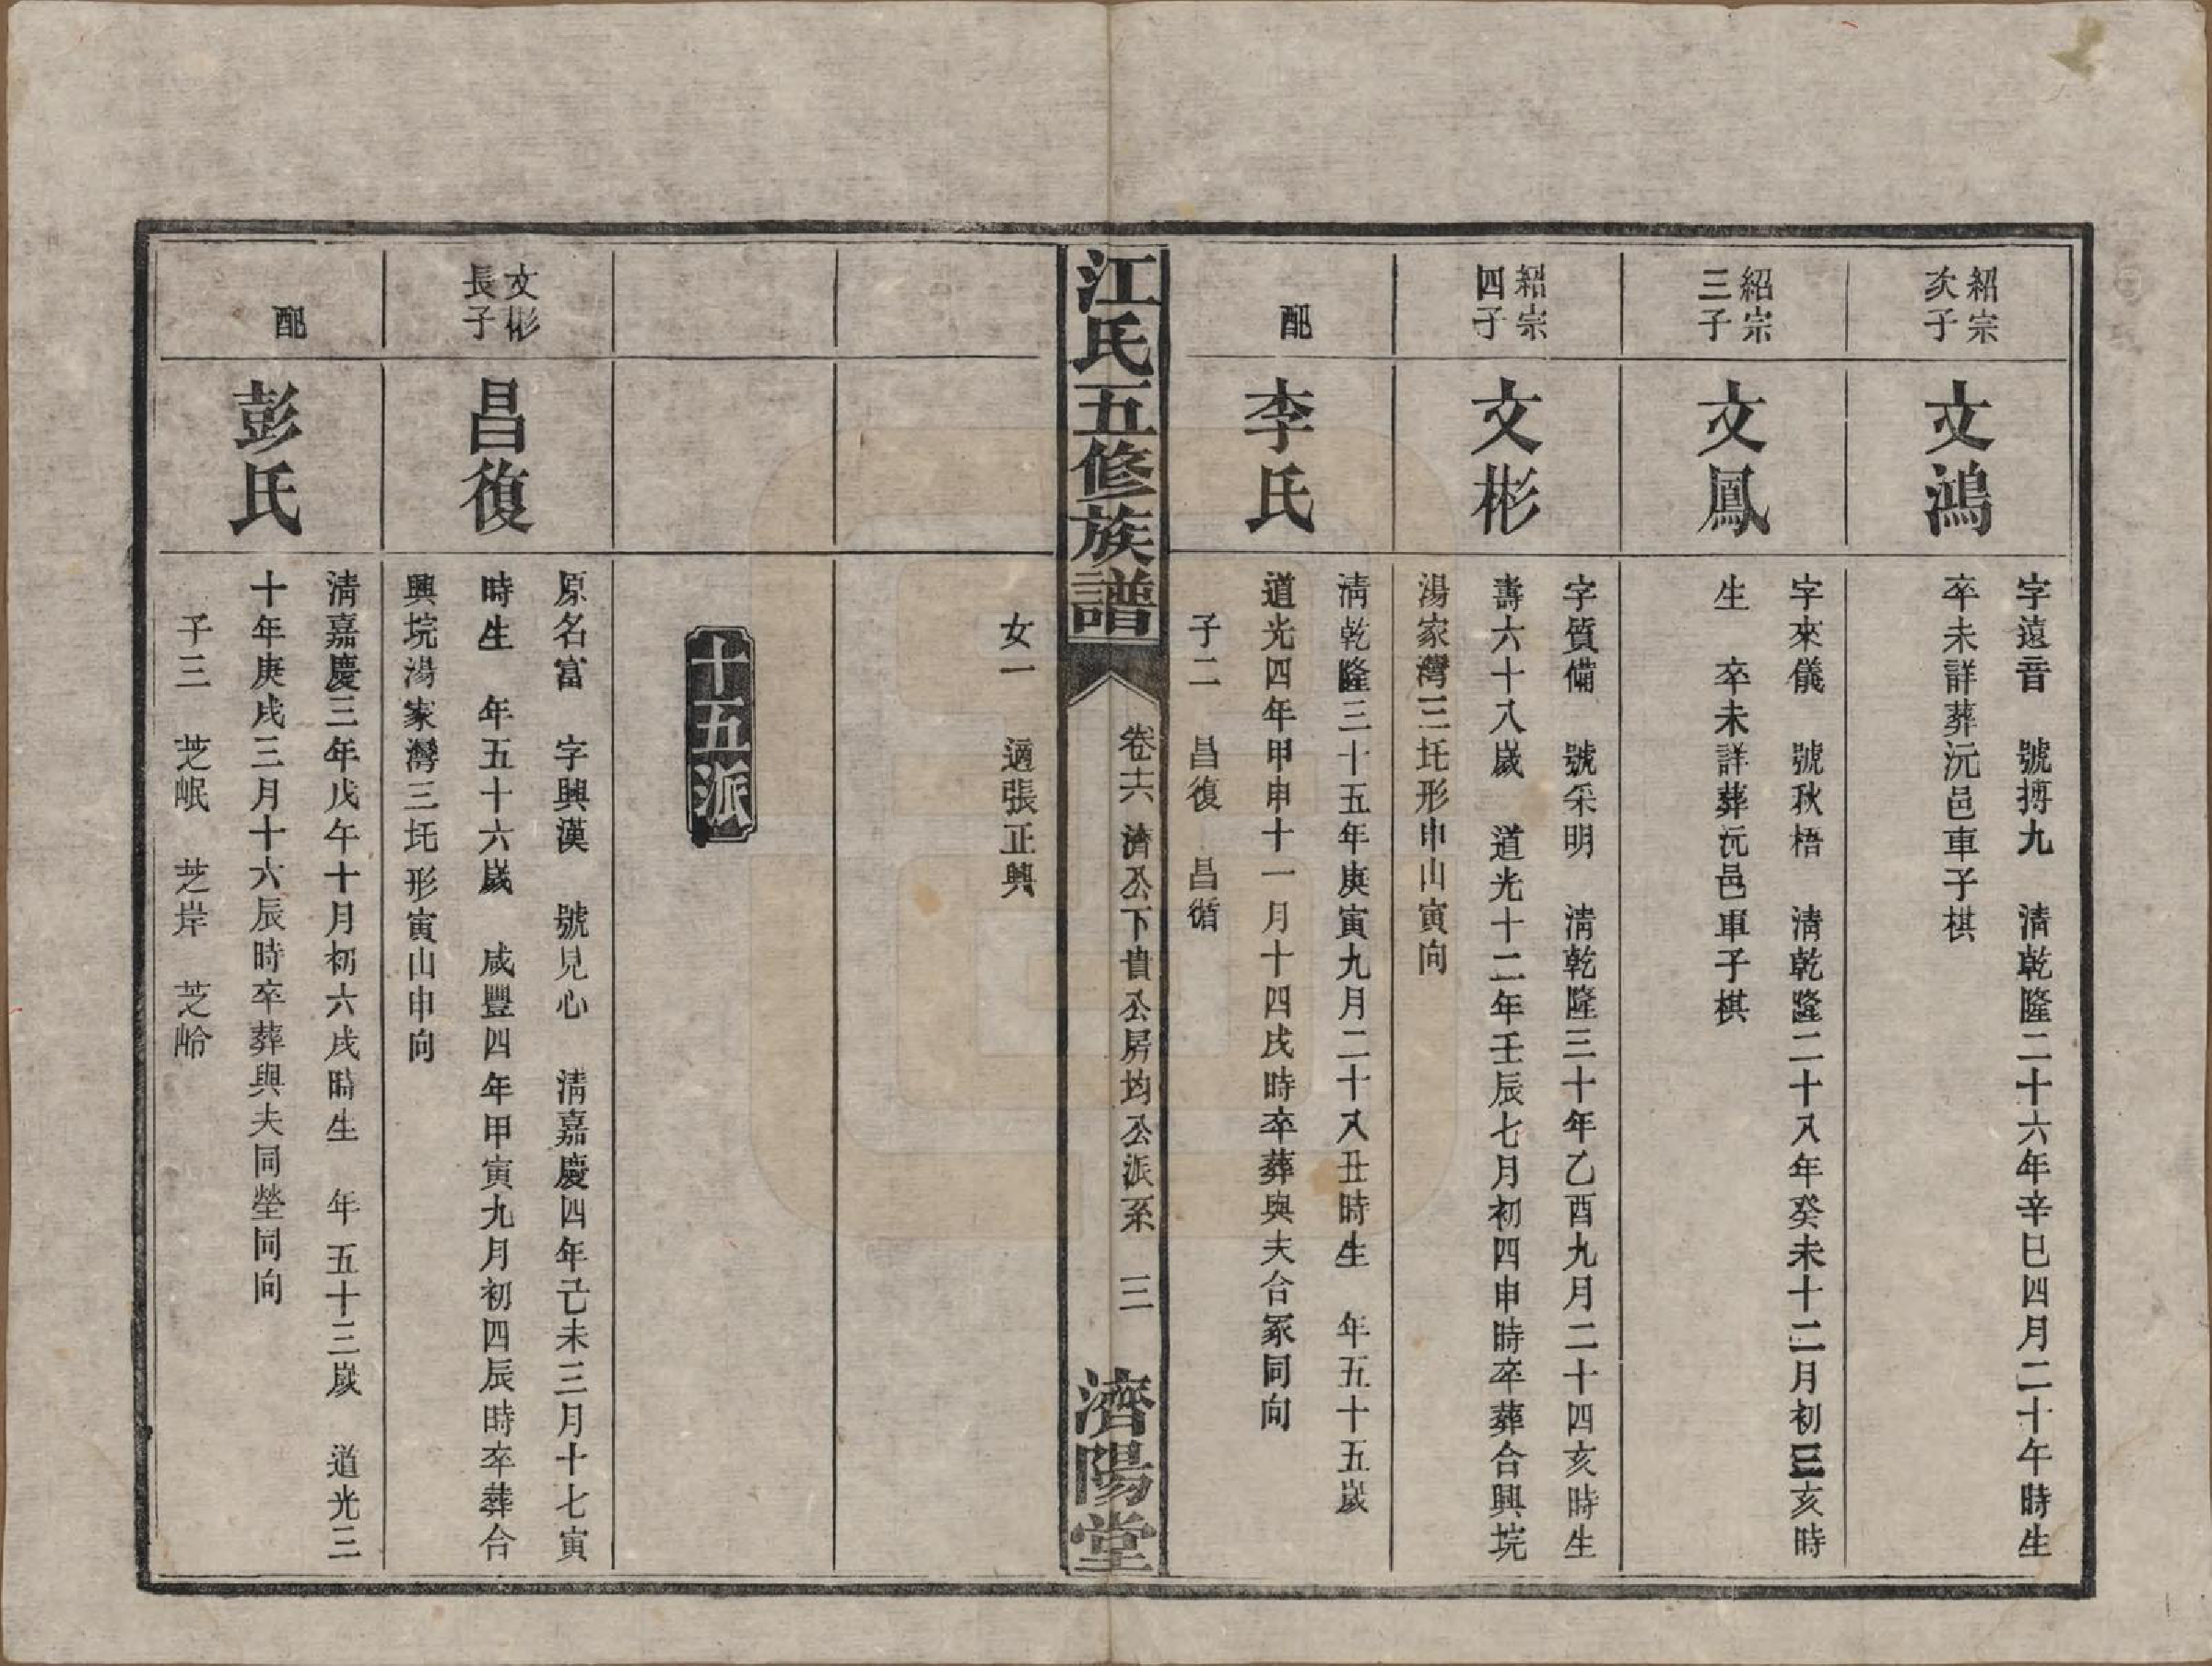 紹宗
次子
文鴻
字遠音　號摶九　清乾隆二十六年辛巳四月二十午時生
卒未詳葬沅邑車子棋
紹宗
三子
文鳳
字來儀　號秋梧　清乾隆二十八年癸未十二月初三亥時
生　卒未詳葬沅邑車子棋
紹宗
四子
文彬
字質備　號采明　清乾隆三十年乙酉九月二十四亥時生
壽六十八歲　道光十二年壬辰七月初四申時卒葬合興垸
湯家灣三圫形申山寅向
配
李氏
清乾隆三十五年庚寅九月二十八丑時生　年五十五歲
道光四年甲申十一月十四戌時卒葬與夫合冢同向
子二　昌復　昌循
江氏五修族譜
卷十六　濟公下貴公房均公派系　三
濟陽堂
女一　適張正興
十五派
文彬
長子
昌復
原名富　字興漢　號見心　清嘉慶四年己未三月十七寅
時生　年五十六歲　咸豐四年甲寅九月初四辰時卒葬合
興垸湯家灣三圫形寅山申向
配
彭氏
清嘉慶三年戊午十月初六戌時生　年五十三歲　道光三
十年庚戌三月十六辰時卒葬與夫同塋同向
子三　芝岷　芝岸　芝峆